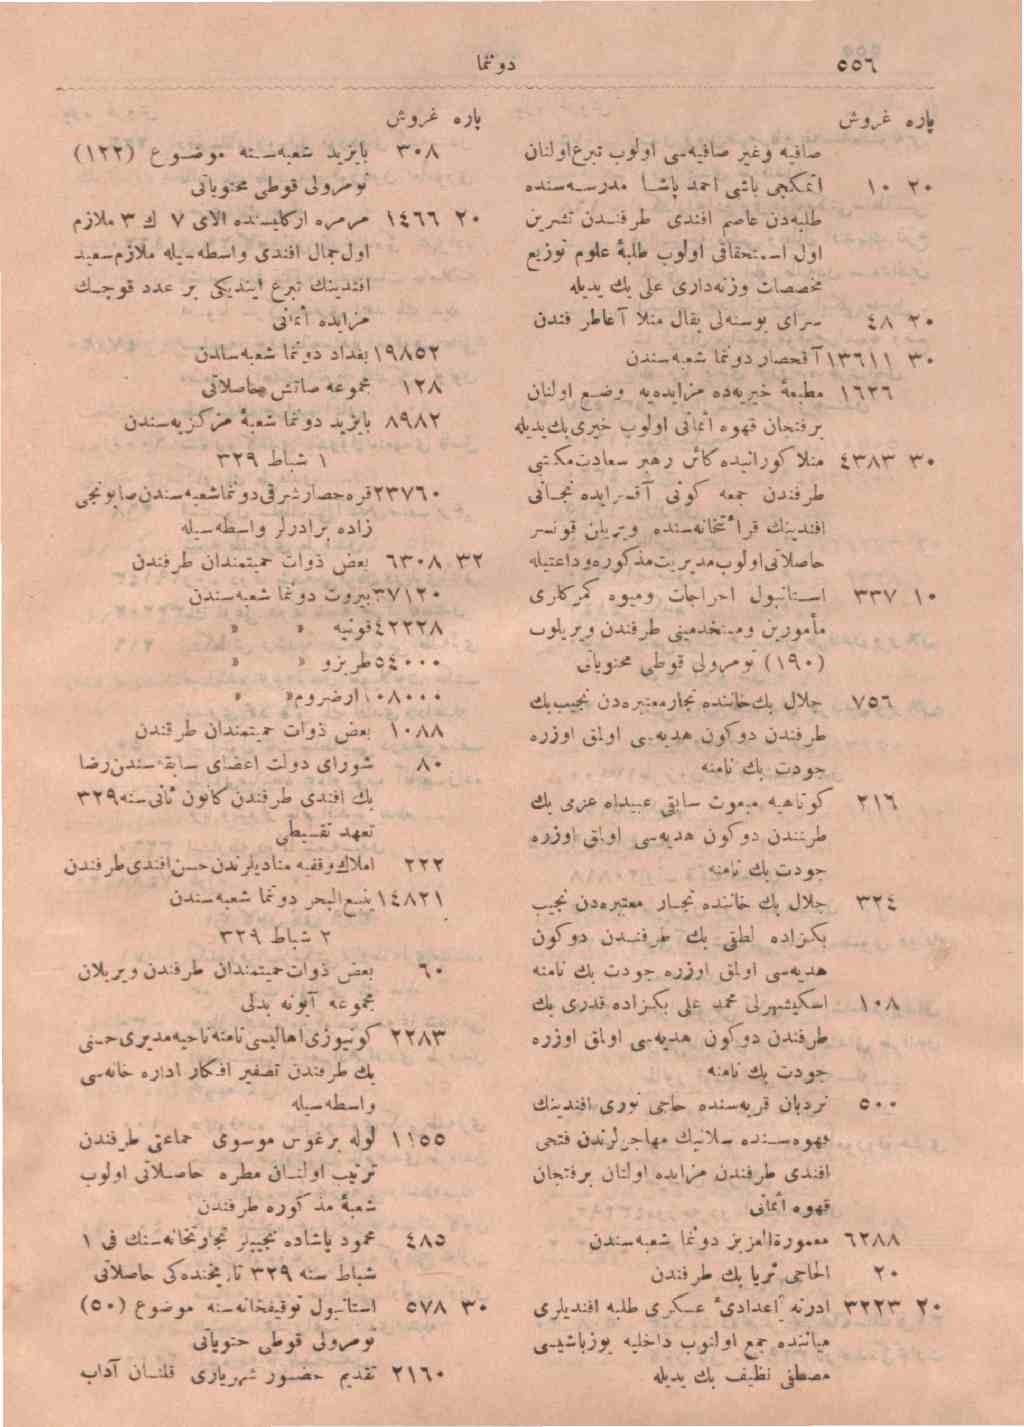 ٥٥٦
دوننما
پاره غروش
صافیه وغیر صافیه‌سی اولوب تبرع اولنان
٢٠ ١٠ اتمکچی باشی احمد پاشا مدرسه‌سنده
طلبه‌دن عاصم افندی طرفندن تشرین
اول استحقاقی اولوب طلبهٔ علوم توزیع
مخصصات وزنه‌داری علی بك یدیله
٢٠ ٤٨ سرای بوسنه‌لی بقال منلا آغا طرفندن
٣٠ ١٣٦١١ آقحصار دوننما شعبه‌سندن
١٦٢٦ مطبعهٔ خیریه‌ده مزایده‌یه وضع اولنان
برفنجان قهوه اثمانی اولوب خیری بك یدیله
٣٠ ٤٣٨٣ منلا کورانیده کائن رهبر سعادت مکتبی
طرفندن جمعه کونی آقسرایده نجاتی
افندینك قرائتخانه‌سنده ویریلن قونسر
حاصلاتی اولوب مدیریت مذکوره وداعتیله
١٠ ٣٣٧ استانبول اخراجات ومیوه کمرکلری
مأمورین ومستخدمینی طرفندن ویریلوب
(١٩٠) نومرولی قوطی محتویاتی
٧٥٦ جلال بك خاننده تجار معتبره‌دن نجیب بك
طرفندن دوکون هدیه‌سی اولمق اوزره
جودت بك نامنه
٢١٦ کوتاهیه مبعوث سابقی عبیدالله عزمی بك
طرفندن دوکون هدیه‌سی اولمق اوزره
جودت بك نامنه
٣٢٤ جلال بك خاننده تجار معتبره‌دن نجیب
بکزاده لطفی بك طرفندن دوکون
هدیه‌سی اولمق اوزره جودت بك نامنه
١٠٨ اسکیشهرلی محمد علی بکزاده قدری بك
طرفندن دوکون هدیه‌سی اولمق اوزره
جودت بك نامنه
٥٠٠ نردبان قریه‌سنده حاجی نوری افندینك
قهوه‌سنده سلانیك مهاجرلرندن فتحی
افندی طرفندن مزایده اولنان برفنجان
قهوه اثمانی
٦٢٨٨ معمورة‌العزیز دوننما شعبه‌سندن
٢٠ الحاجی ثریا بك طرفندن
٢٠ ٣٢٢٣ ادرنه اعدادیٔ عسکری طلبه افندیلری
میاننده جمع اولنوب داخلیه یوزباشیسی
مصطفی نظیف بك یدیله
پاره غروش
٣٠٨ بایزید شعبه‌سنه موضوع (١٢٢)
نومرولی قوطی محتویاتی
٢٠ ١٤٦٦ مرمره ارکلیسنده الای ٧ ك ٣ ملازم
اول جمال افندی واسطه‌سیله ملازم سعید
افندینك تبرع ایتدیکی بر عدد قوچك
مزایده اثمانی
١٩٨٥٢ بغداد دوننما شعبه‌سندن
١٢٨ مجموعه صاتش حاصلاتی
٨٩٨٢ بایزید دوننما شعبهٔ مرکزیه‌سندن
١ شباط ٣٢٩
٢٣٧٦٠ قره‌حصار شرقی دوننما شعبه‌سندن صابونجی
زاده برادرلر واسطه‌سیله
٣٢ ٦٣٠٨ بعض ذوات حمیتمندان طرفندن
٣٧١٢٠ بیروت دوننما شعبه‌سندن
٤٢٢٢٨ قونیه » »
٥٤٠٠٠ طربزو » »
١٠٨٠٠٠ ارضروم » »
١٠٨٨ بعض ذوات حمیتمندان طرفندن
٨٠ شورای دولت اعضای سابقه‌سندن رضا
بك افندی طرفندن کانون ثانی سنه ٣٢٩
تعهد تقسیطی
٢٢٢ املاك وقفیه منادیلرندن حسن افندی طرفندن
١٤٨٢١ ینبع‌البحر دوننما شعبه‌سندن
٢ شباط ٣٢٩
٦٠ بعض ذوات حمیتمندان طرفندن ویریلان
مجموعه آبونه بدلی
٢٢٨٣ کونیوزی اهالیسی نامنه ناحیه مدیری حسنی
بك طرفندن تصفیر افکار اداره خانه‌سی
واسطه‌سیله
١١٥٥ لوله برغوس موسوی جماعتی طرفندن
ترتیب اولنان مطره حاصلاتی اولوب
شعبهٔ مذکوره طرفندن
٤٨٥ محمود پاشاده نجیبلر تجارتخانه‌سنك فی ١
شباط سنه ٣٢٩ تاریخنده‌کی حاصلاتی
٣٠ ٥٧٨ استانبول توقیفخانه‌سنه موضوع (٥٠)
نومرولی قوطی محتویاتی
٢١٦٠ تقدیم حضور شهریاری قلنان آداب